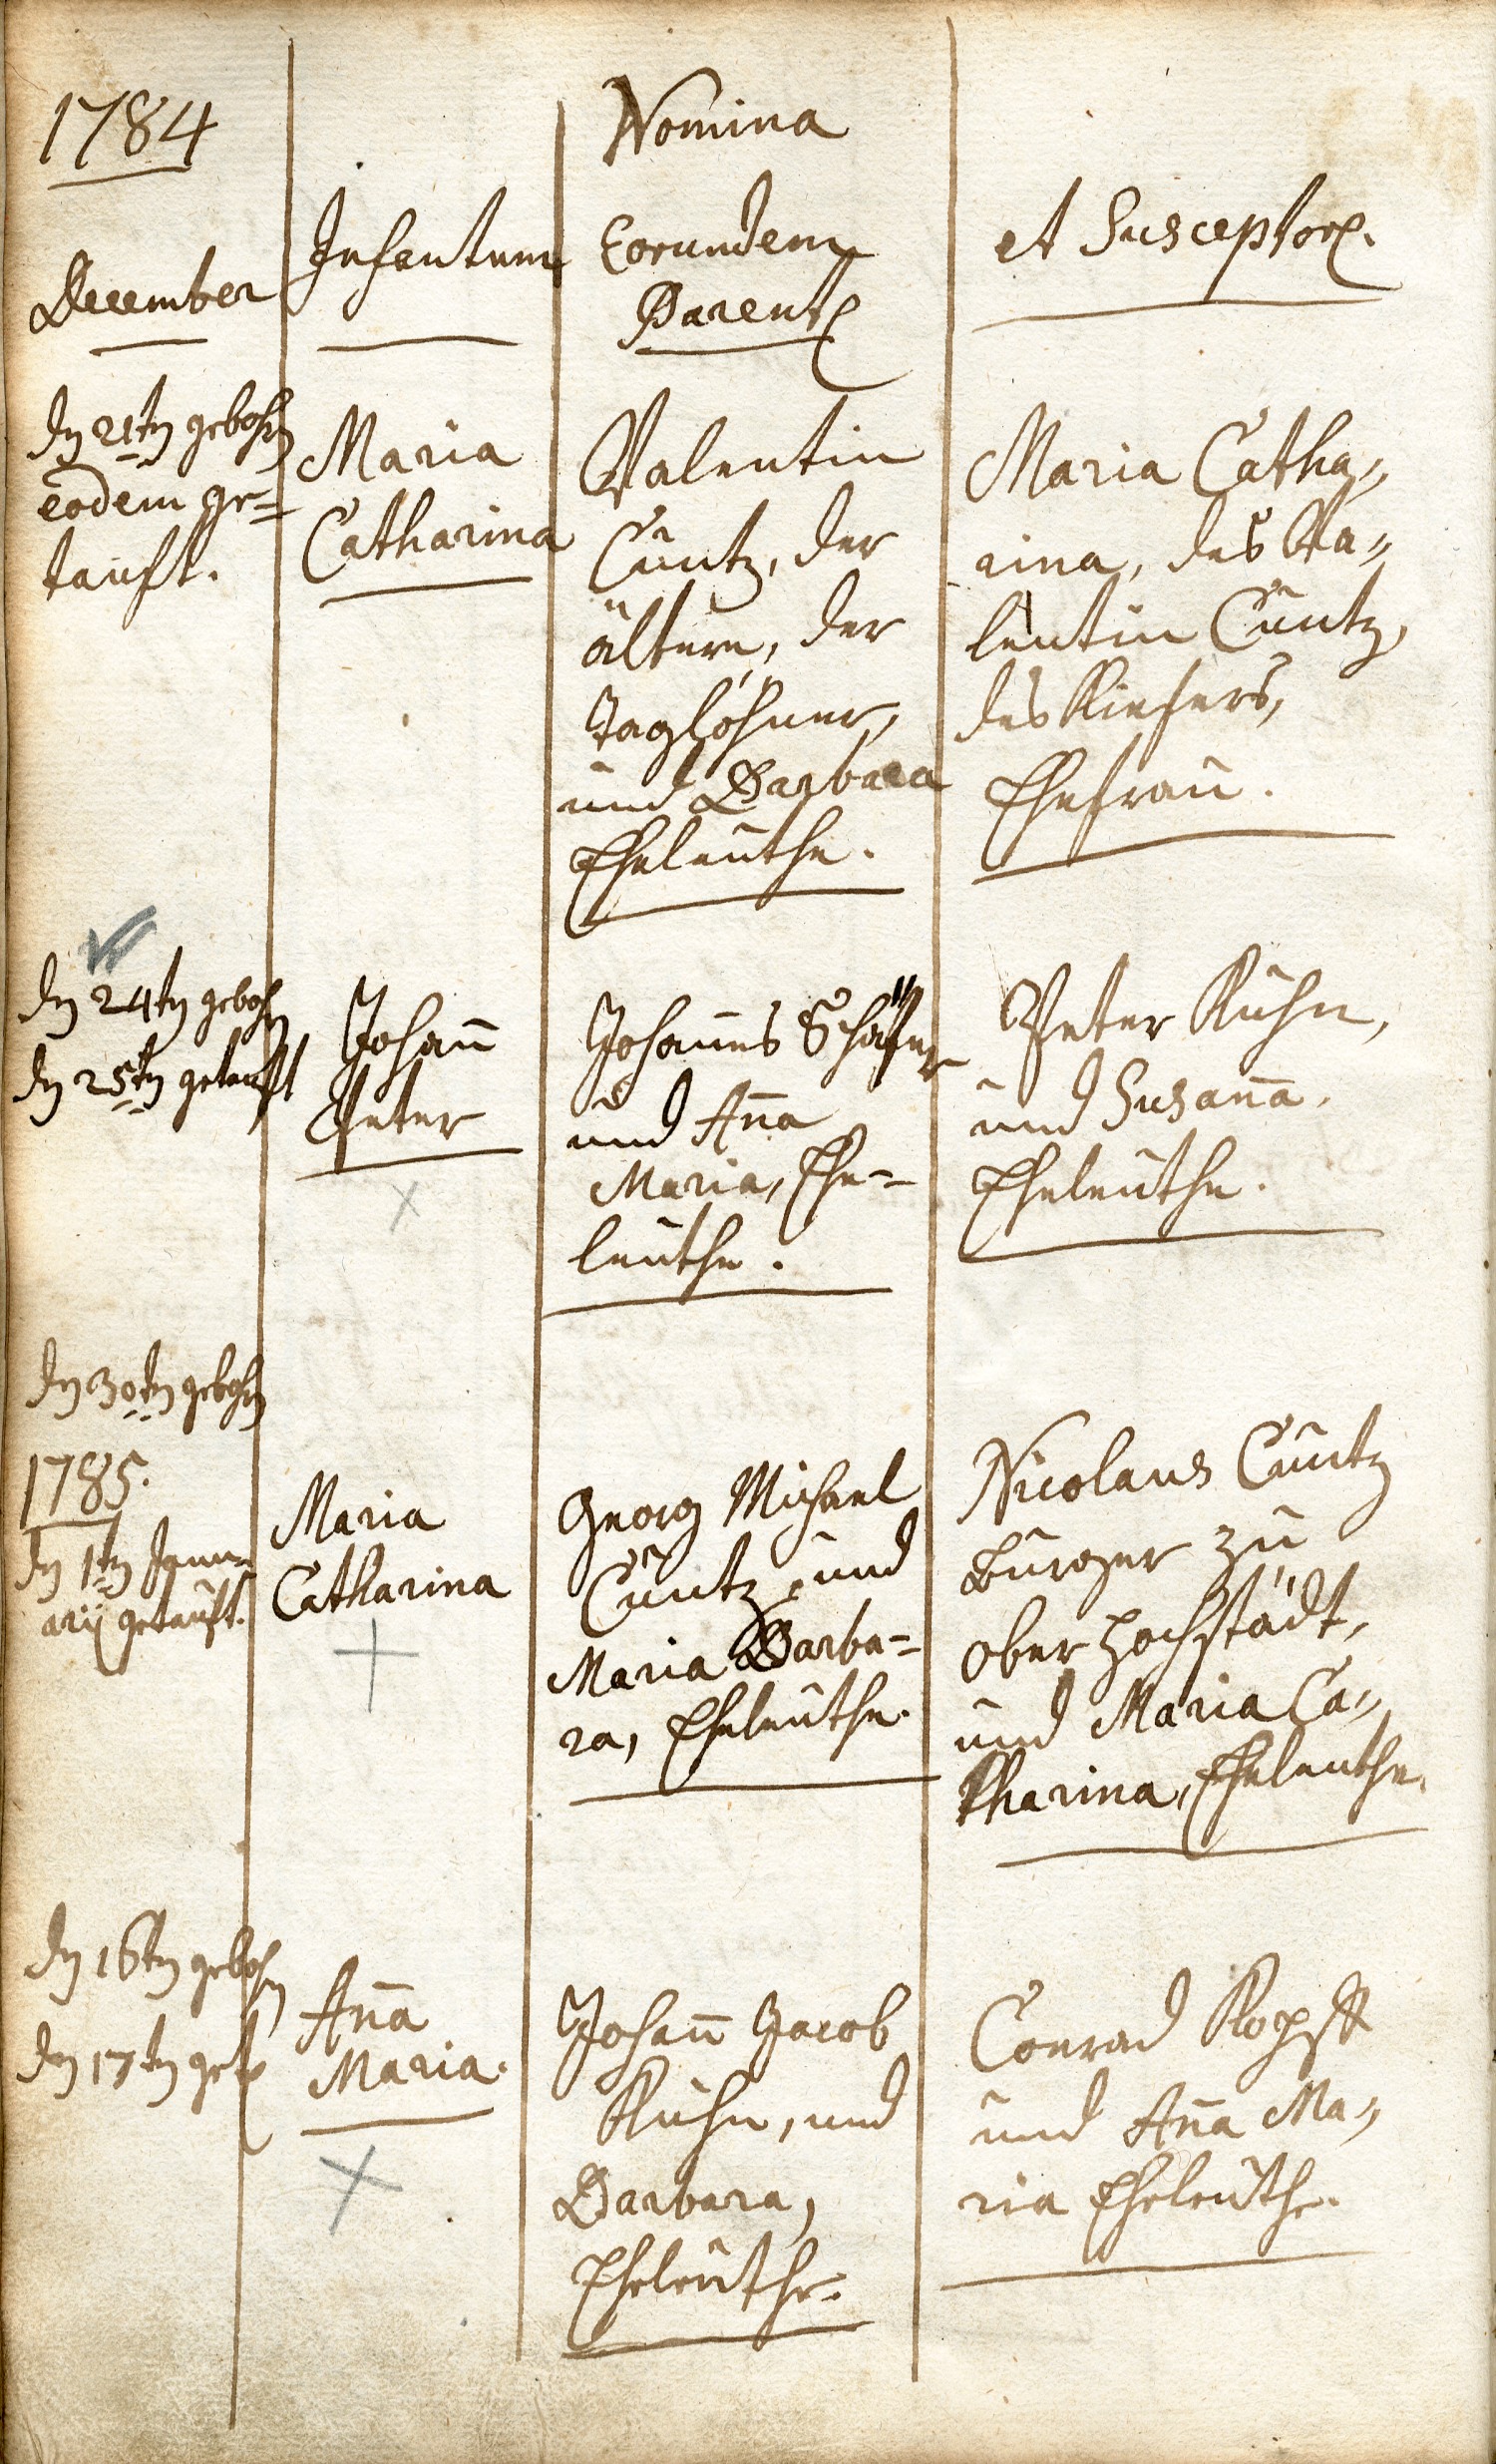 1784
Nomina
December
Infantum
Eorundem
Parent
et Susceptor.
den 21ten gebohrn
eodem ge=
tauft.
Maria
Catharina
Valentin
Cuntz, der
ältere, der
Taglöhner,
und Barbara
Eheleuthe.
Maria Catha=
rina, des Va=
lentin Cuntz,
des Kiefers,
Ehefrau.
den 24ten gebohrn
den 25ten getauft
Johan̄
Peter
Johannes Schäfer
und An̄a
Maria, Ehe=
leuthe.
Peter Kuhn,
und Susan̄a.
Eheleuthe.
den 30ten gebohrn
1785.
den 1ten Janu=
arij getauft.
Maria
Catharina
Georg Michael
Cuntz, und
Maria Barba=
ra, Eheleuthe.
Nicolaus Cuntz
Burger zu
Ober Hochstädt,
und Maria Ca=
tharina, Eheleuthe.
den 16ten gebohrn
den 17ten get
An̄a
Maria.
Johan̄ Jacob
Kuhn, und
Barbara,
Eheleuthe.
Conrad
und An̄a Ma=
ria Eheleuthe.